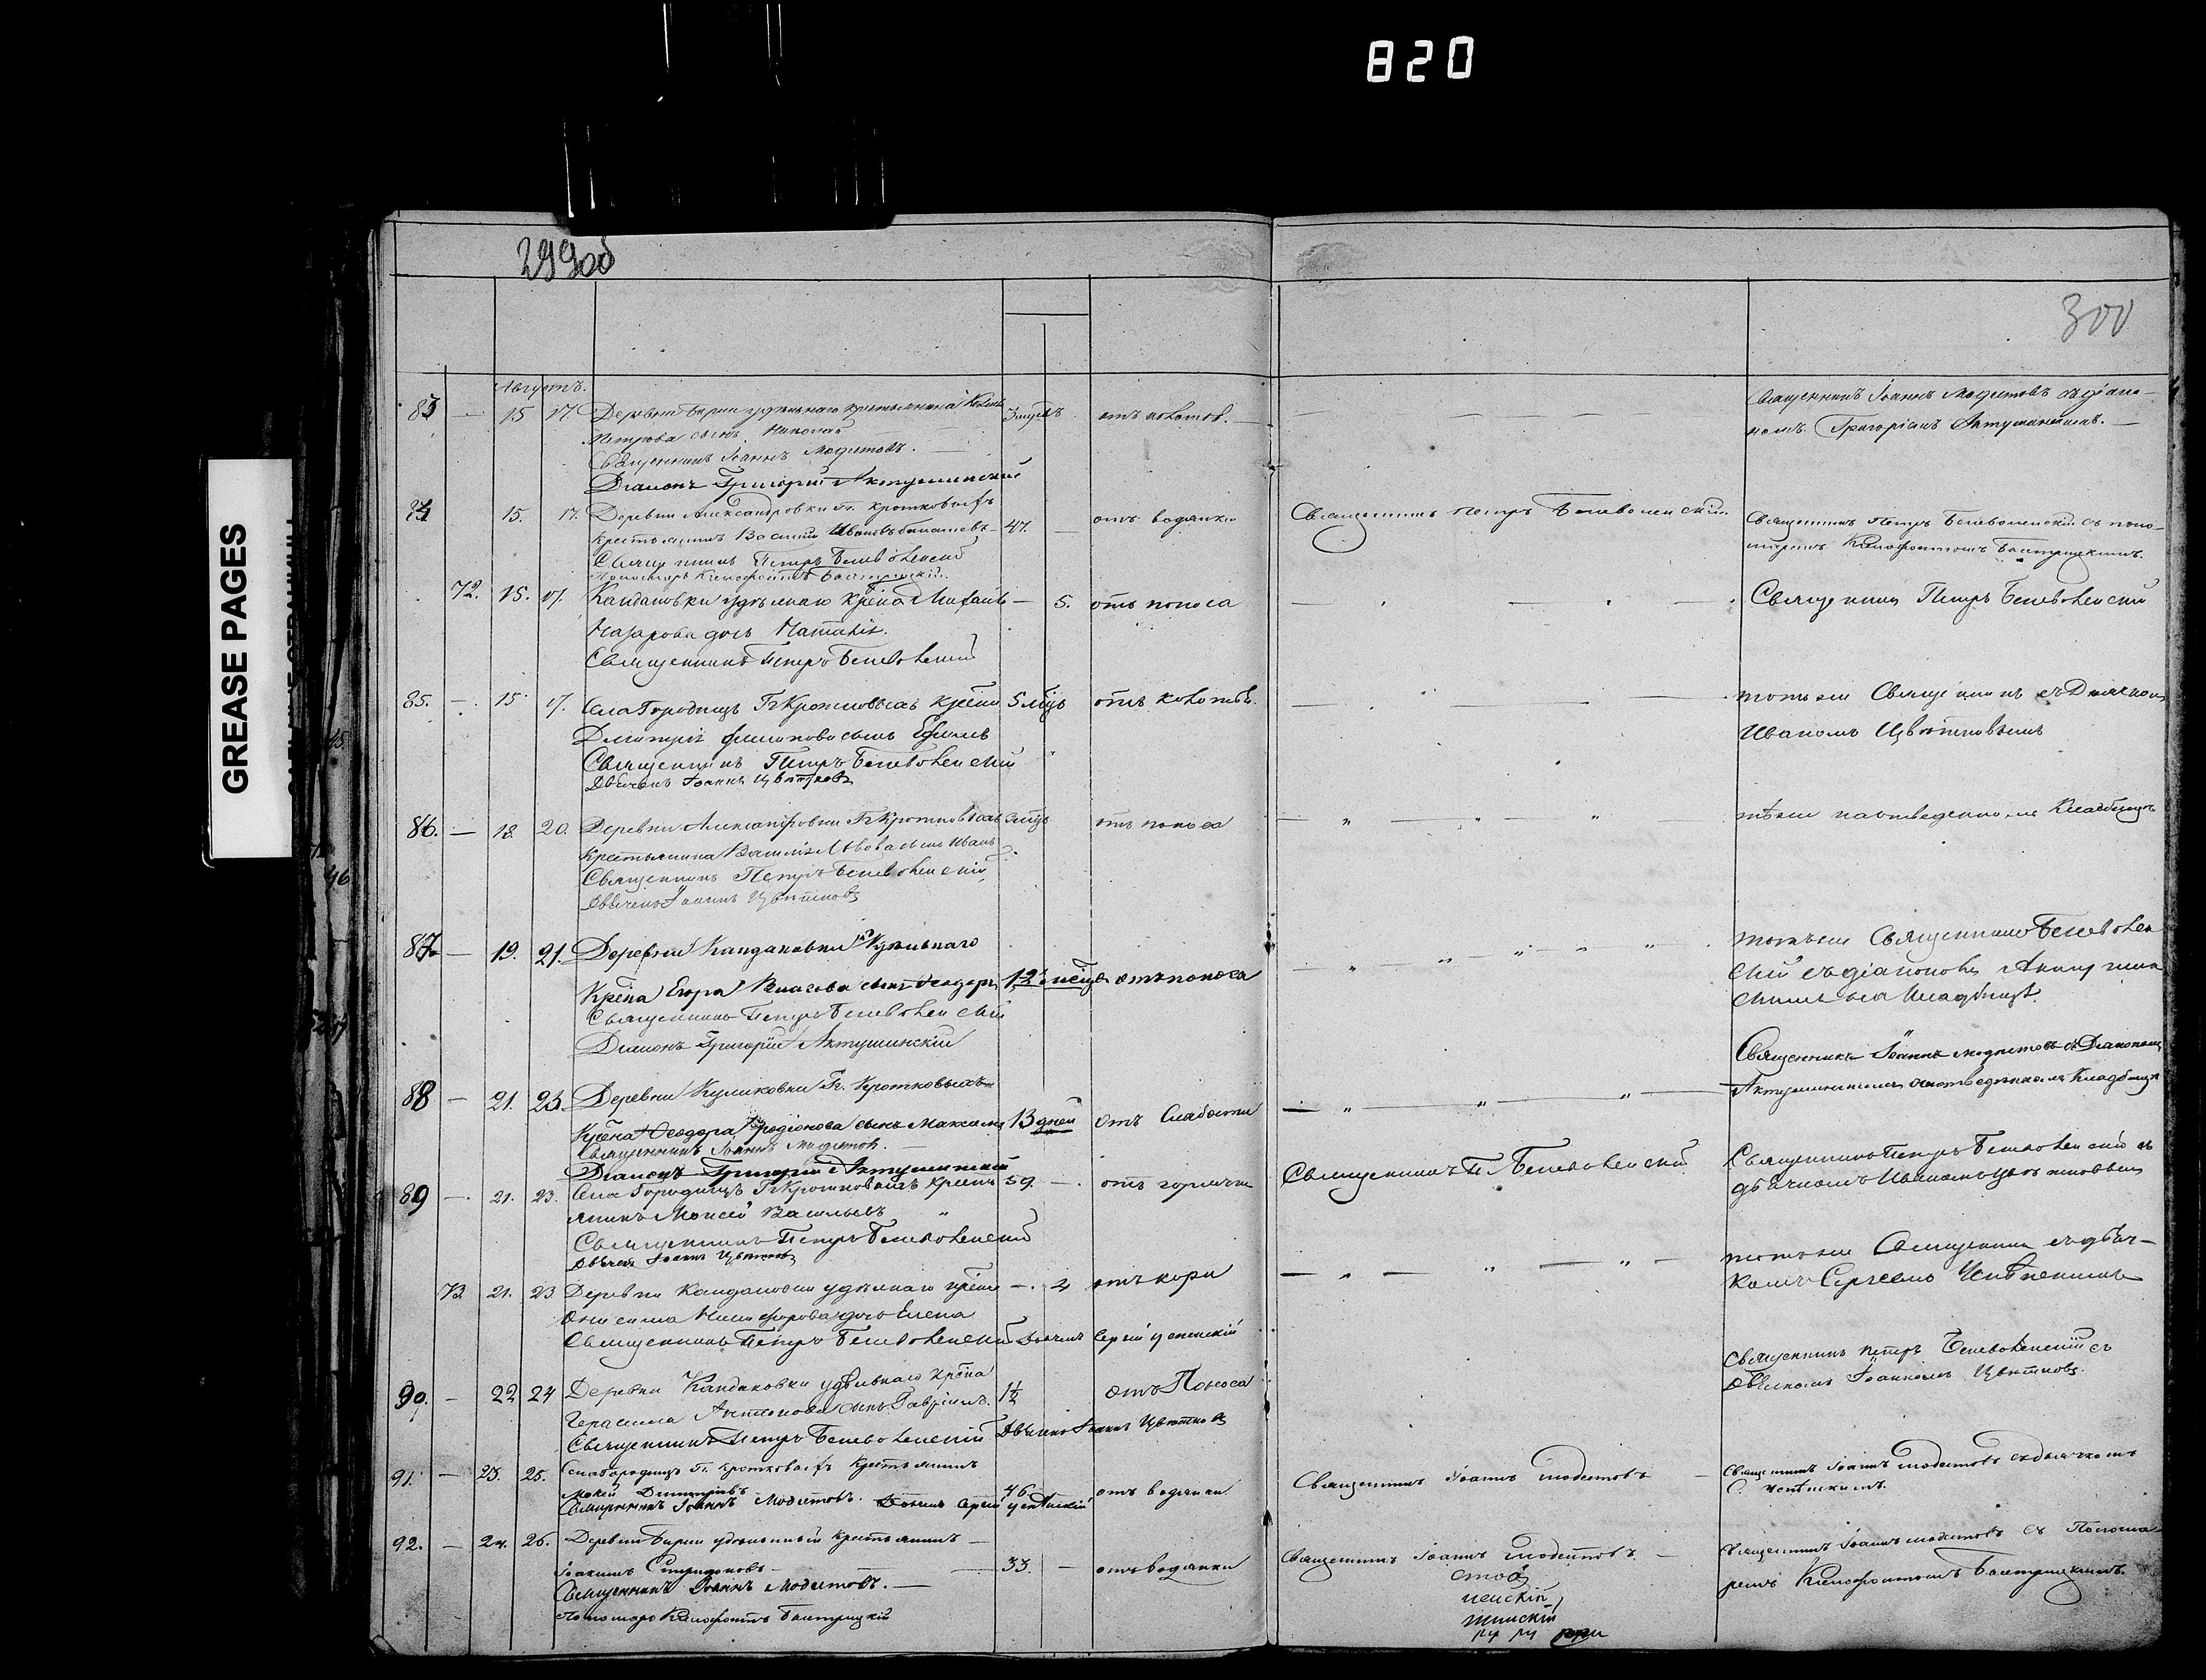 820
GREASE PAGES
299об
300
Августъ.
83 — 15 17. Деревни Бирли удѣльнаго крестьянина
Петрова сынъ Николай
Священникъ Іоаннъ Модестовъ. —
Діаконъ Григорій Актушинскій
Священникъ Іоаннъ Модестовъ съ діако-
номъ Григоріемъ Актушинскимъ. —
84 15. 17. Деревни Александровки Гг. Кротковыхъ
крестьянинъ Василій Ивановъ — 47. — отъ водянки
Священникъ Петръ Беневоленскій
Пономарь Ксенофонтъ Бактрицкій.
Священникъ Петръ Беневоленскій.
Священникъ Петръ Беневоленскій съ поно-
маремъ Ксенофонтомъ Бактрицкимъ.
72. 15. 17. Кандаковки удѣльнаго крѣна Михаила — 5. отъ поноса
Назарова дочь Наталія.
Священникъ Петръ Беневоленскій
Священникъ Петръ Беневоленскій
85. — 15 17. Села Городищъ Гг Кротковыхъ 5 мѣц отъ
Дмитрія Филипова сынъ
Священникъ Петръ Беневоленскій
Дьячекъ Іоаннъ Цвѣтковъ
тотъ же Священникъ съ Дьячкомъ
Иваномъ Цвѣтковымъ
86. — 18. 20. Деревни Александровки Гг Кротковыхъ отъ поноса
Крестьянина Василія Львова сынъ Иванъ
Священникъ Петръ Беневоленскій
Дьячекъ Іоаннъ Цвѣтковъ
на отведенномъ Кладбищѣ
87. — 19. 21. Деревни Кандаковки Удѣльнаго
Крѣна Егора Власова сынъ Ѳеодоръ отъ поноса
Священникъ Петръ Беневоленскій
Діаконъ Григорій Актушинскій
тотъ же Священникъ Беневолен
скій съ діакономъ Актушин
скимъ на кладбищѣ.
88 — 21. 23. Деревни Куликовки Гг. Кротковыхъ
Крѣна Ѳеодора Родіонова сынъ Максимъ 13 дней отъ слабости
Священникъ Іоаннъ Модестовъ. —
Діаконъ Григорій Актушинскій
Священникъ Іоаннъ Модестовъ съ Діакономъ
Актушинскимъ на отведенномъ Кладбищѣ
89 — 21. 23. Села Городищъ Гг Кротковыхъ Кресть 59. — отъ горячки
янинъ Моисей Васильевъ
Священникъ Петръ Беневоленскій
Дьячекъ Іоаннъ Цвѣтковъ
Священникъ П. Беневоленскій
Священникъ Петръ Беневоленскій съ
дьячкомъ Иваномъ Цвѣтковымъ
73. 21. 23 Деревни Кандаковки удѣльнаго — 2 отъ кори
Онисима Никифорова дочь Елена
Священникъ Петръ Беневоленскій Дьячекъ Сергій Успенскій
тотъ же Священникъ съ дьяч-
комъ Сергеемъ Успенскимъ
90. — 22 24 Деревни Кандаковки удѣльнаго крѣна 1½ отъ Поноса
Герасима Антонова сынъ Гавріилъ.
Священникъ Петръ Беневоленскій Дьячекъ Іоаннъ Цвѣтковъ
Священникъ Петръ Беневоленскій съ
Дьячкомъ Іоанномъ Цвѣтковъ.
91. — 23. 25. Села Городищъ Гг. Кротковыхъ Крестьянинъ
Мокій Димитріевъ 46. отъ водянки
Священникъ Іоаннъ Модестовъ. Дьячекъ Сергій Успенскій
Священникъ Іоаннъ Модестовъ —
Священникъ Іоаннъ Модестовъ съ дьячкомъ
С. Успенскимъ.
92. — 24. 26. Деревни Бирли удѣльный крестьянинъ —
Іоакимъ Спиридоновъ — 33. — отъ водянки
Священникъ Іоаннъ Модестовъ. —
Пономарь Ксенофонтъ Бактрицкій
Священникъ Іоаннъ Модестовъ. —
Священникъ Іоаннъ Модестовъ съ Понома
ремъ Ксенофонтомъ Бактрицкимъ.